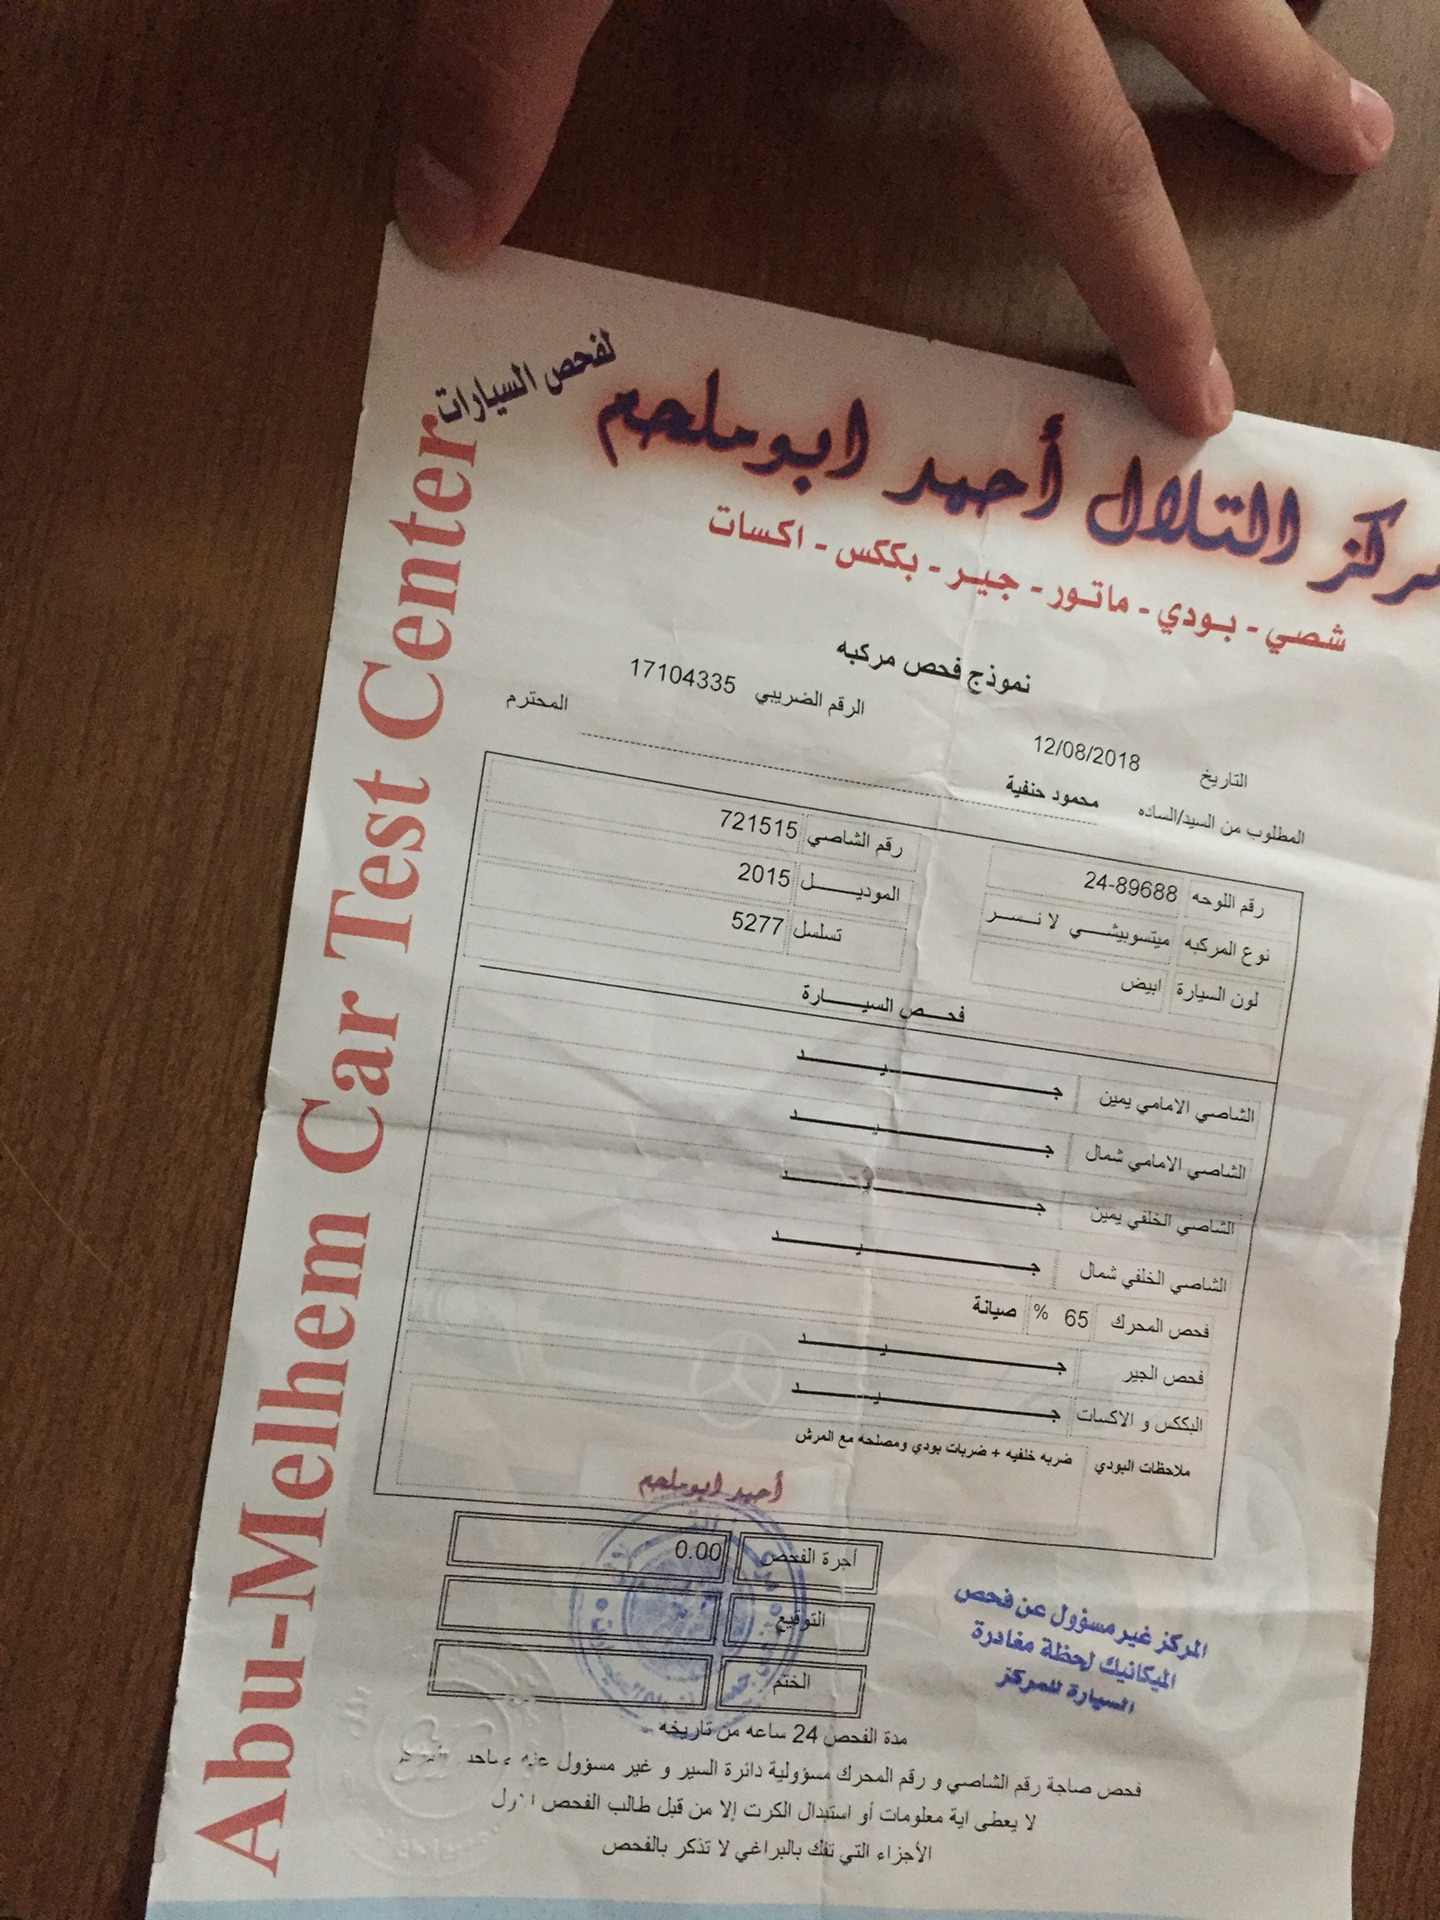 لفحص السيارات
مركز التلال أحمد ابوملحم
شصي - بودي - ماتور - جير - بككس - اكسات
Abu-Melhem Car Test Center
نموذج فحص مركبه
الرقم الضريبي 17104335
التاريخ 12/08/2018
المطلوب من السيد/الساده محمود حنفية المحترم
رقم اللوحه 24-89688 رقم الشاصي 721515
نوع المركبه ميتسوبيشي لا نسر الموديل 2015
لون السيارة ابيض تسلسل 5277
فحص السيارة
الشاصي الامامي يمين جيد
الشاصي الامامي شمال جيد
الشاصي الخلفي يمين جيد
الشاصي الخلفي شمال جيد
فحص المحرك 65 % صيانة
فحص الجير جيد
البككس و الاكسات جيد
ملاحظات البودي ضربه خلفيه + ضربات بودي ومصلحه مع المرش
أحمد ابوملحم
أجرة الفحص 0.00
التوقيع
الختم
المركز غير مسؤول عن فحص
الميكانيك لحظة مغادرة
السيارة للمركز
مدة الفحص 24 ساعه من تاريخه
فحص صاجة رقم الشاصي و رقم المحرك مسؤولية دائرة السير و غير مسؤول عنه
لا يعطى اية معلومات أو استبدال الكرت إلا من قبل طالب الفحص الاول
الأجزاء التي تفك بالبراغي لا تذكر بالفحص